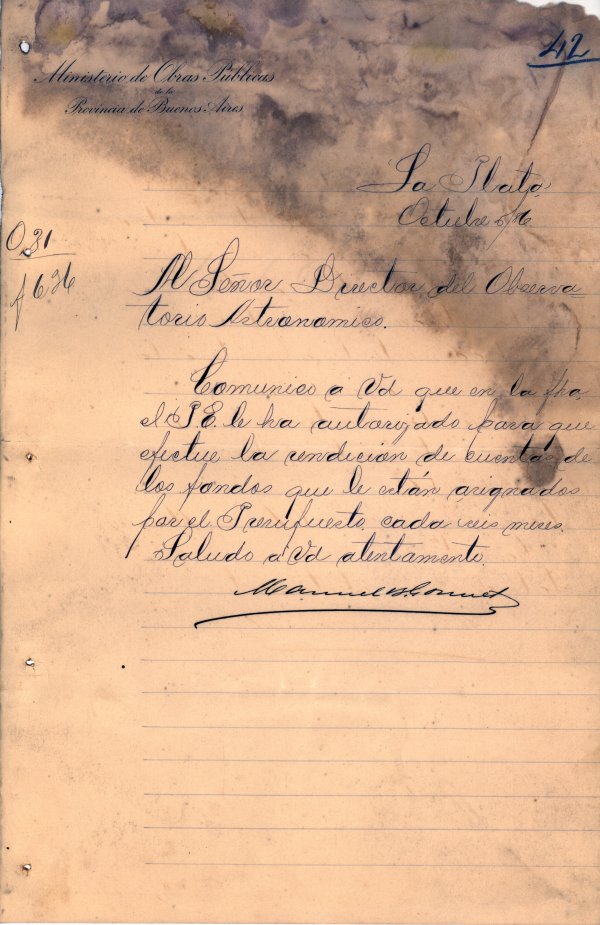 42
Ministerio de Obras Públicas
de la
Provincia de Buenos Aires
La Plata,
Octubre 5/96
O,31
f 636
Al Señor Director del Observa-
torio Astronomico.
Comunico a Vd que en la fha,
el P.E. le ha autorizado para que
efectue la rendición de cuentas de
los fondos que le están asignados
por el Presupuesto, cada seis meses.
Saludo a Vd atentamente.
Manuel B. Gonnet